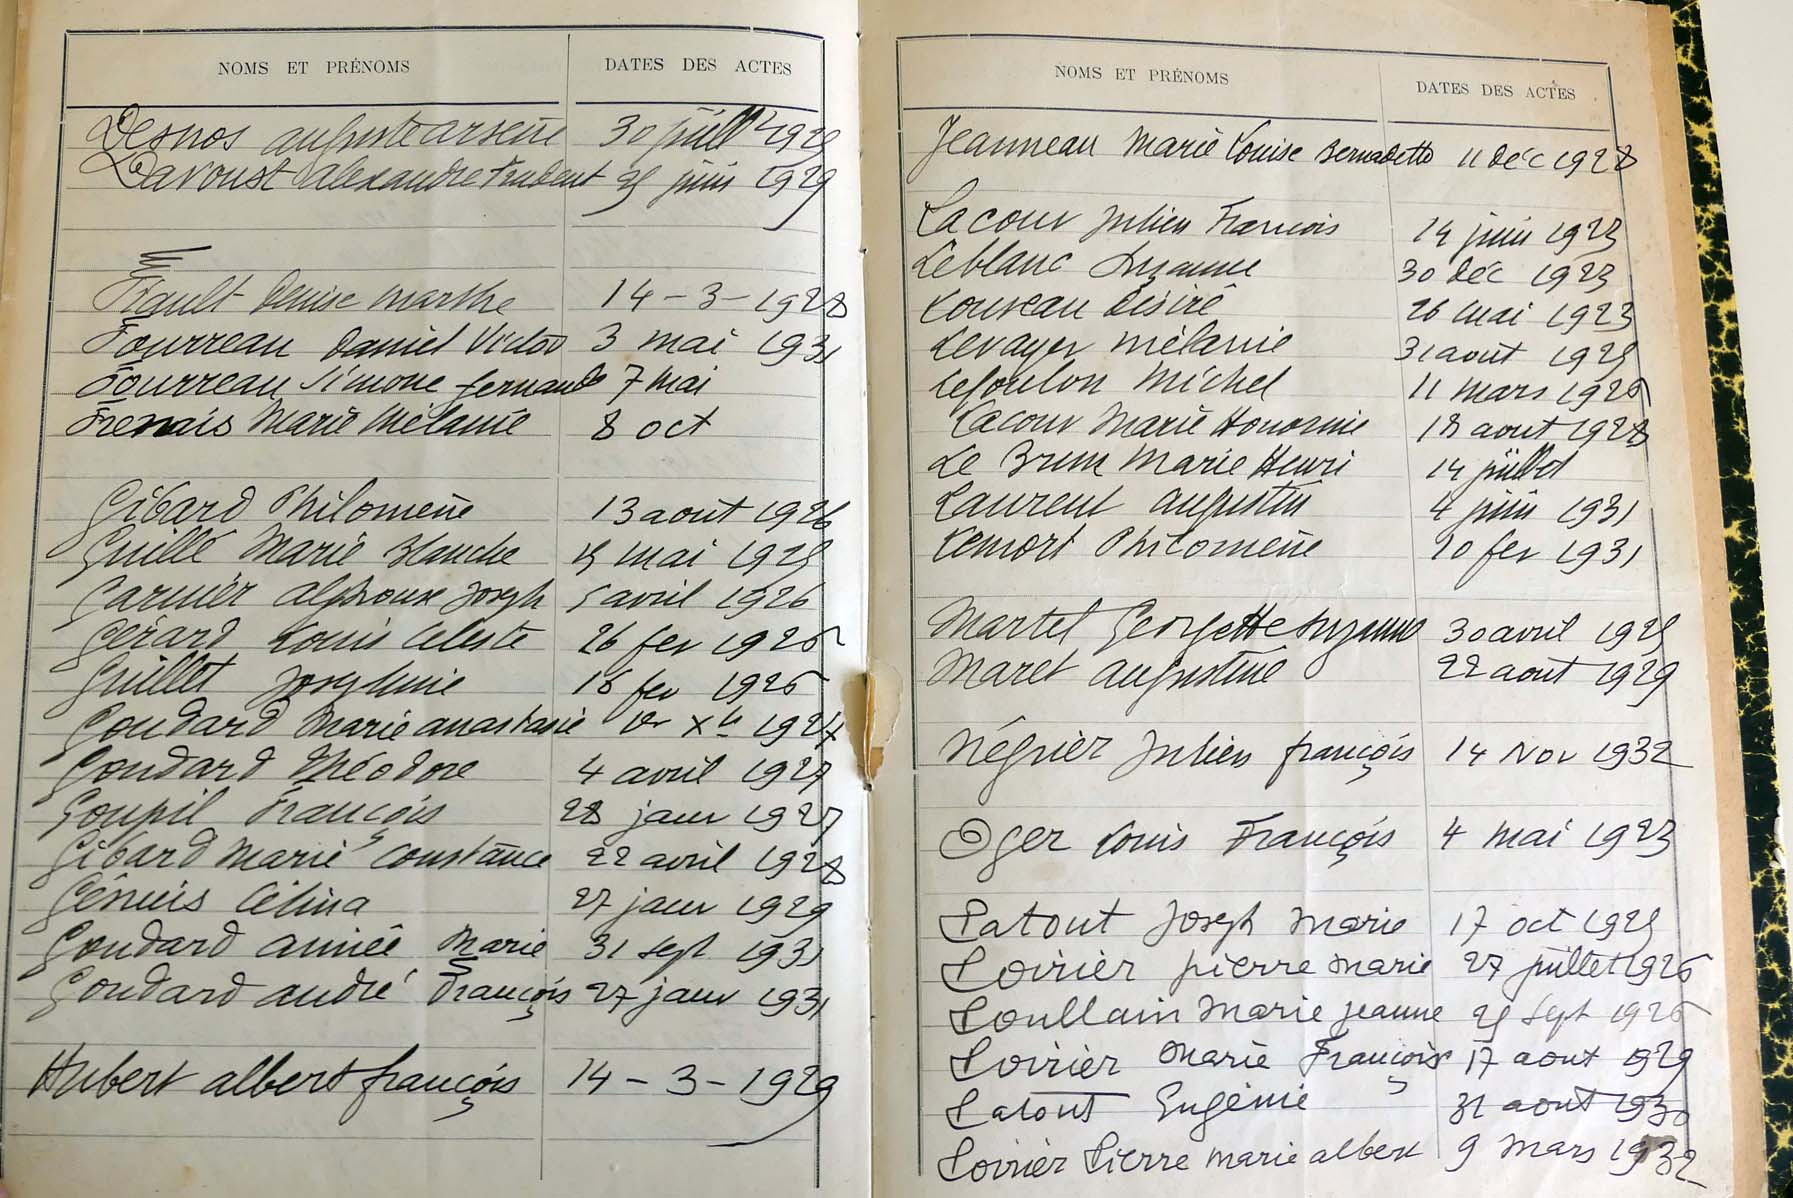 NOMS ET PRÉNOMS DATES DES ACTES
Desnos auguste arsène 30 juill 1925
Davoust alexandre Prudent 25 juin 1929
Frault Denise marthe 14 - 3 - 1928
Fourreau Daniel Victor 3 mai 1931
Fourreau Simone fernande 7 mai
Frenais Marie Mélanie 8 oct
Gibard Philomène 13 août 1926
Guillé Marie Blanche 15 mai 1925
Garnier alphonse Joseph 5 avril 1926
Gérard Louis Celeste 26 fev 1926
Guillet Joséphine 16 fev 1926
Goudard Marie anastasie 1er Xbre 1927
Goudard Théodore 4 avril 1927
Goupil François 28 janv 1927
Gibard Marie Constance 22 avril 1928
Génuis Célina 27 janv 1929
Goudard aimée Marie 31 sept 1931
Goudard andré François 27 janv 1931
Hubert albert françois 14 - 3 - 1929
NOMS ET PRÉNOMS DATES DES ACTES
Jeanneau Marie Louise Bernadette 11 déc 1928
Lacour Julien François 14 juin 1923
Leblanc Suzanne 30 déc 1923
Louveau Désiré 26 mai 1923
Levayer Mélanie 31 aout 1925
Lefoulon Michel 11 mars 1926
Lacour Marie Honorine 18 aout 1928
Le Brun Marie Henri 14 juillet
Laurent augustin 4 juin 1931
Lemort Philomène 20 fev 1931
Martel Georgette Suzanne 30 avril 1925
Maret augustine 22 août 1929
Négrier Julien françois 14 Nov 1932
Oger Louis François 4 mai 1923
Patout Joseph Marie 17 oct 1925
Poirier pierre marie 27 juillet 1926
Poullain Marie jeanne 25 Sept 1926
Poirier Marie François 17 aout 1929
Patout Eugénie 31 aout 1930
Poirier Pierre marie albert 9 mars 1932